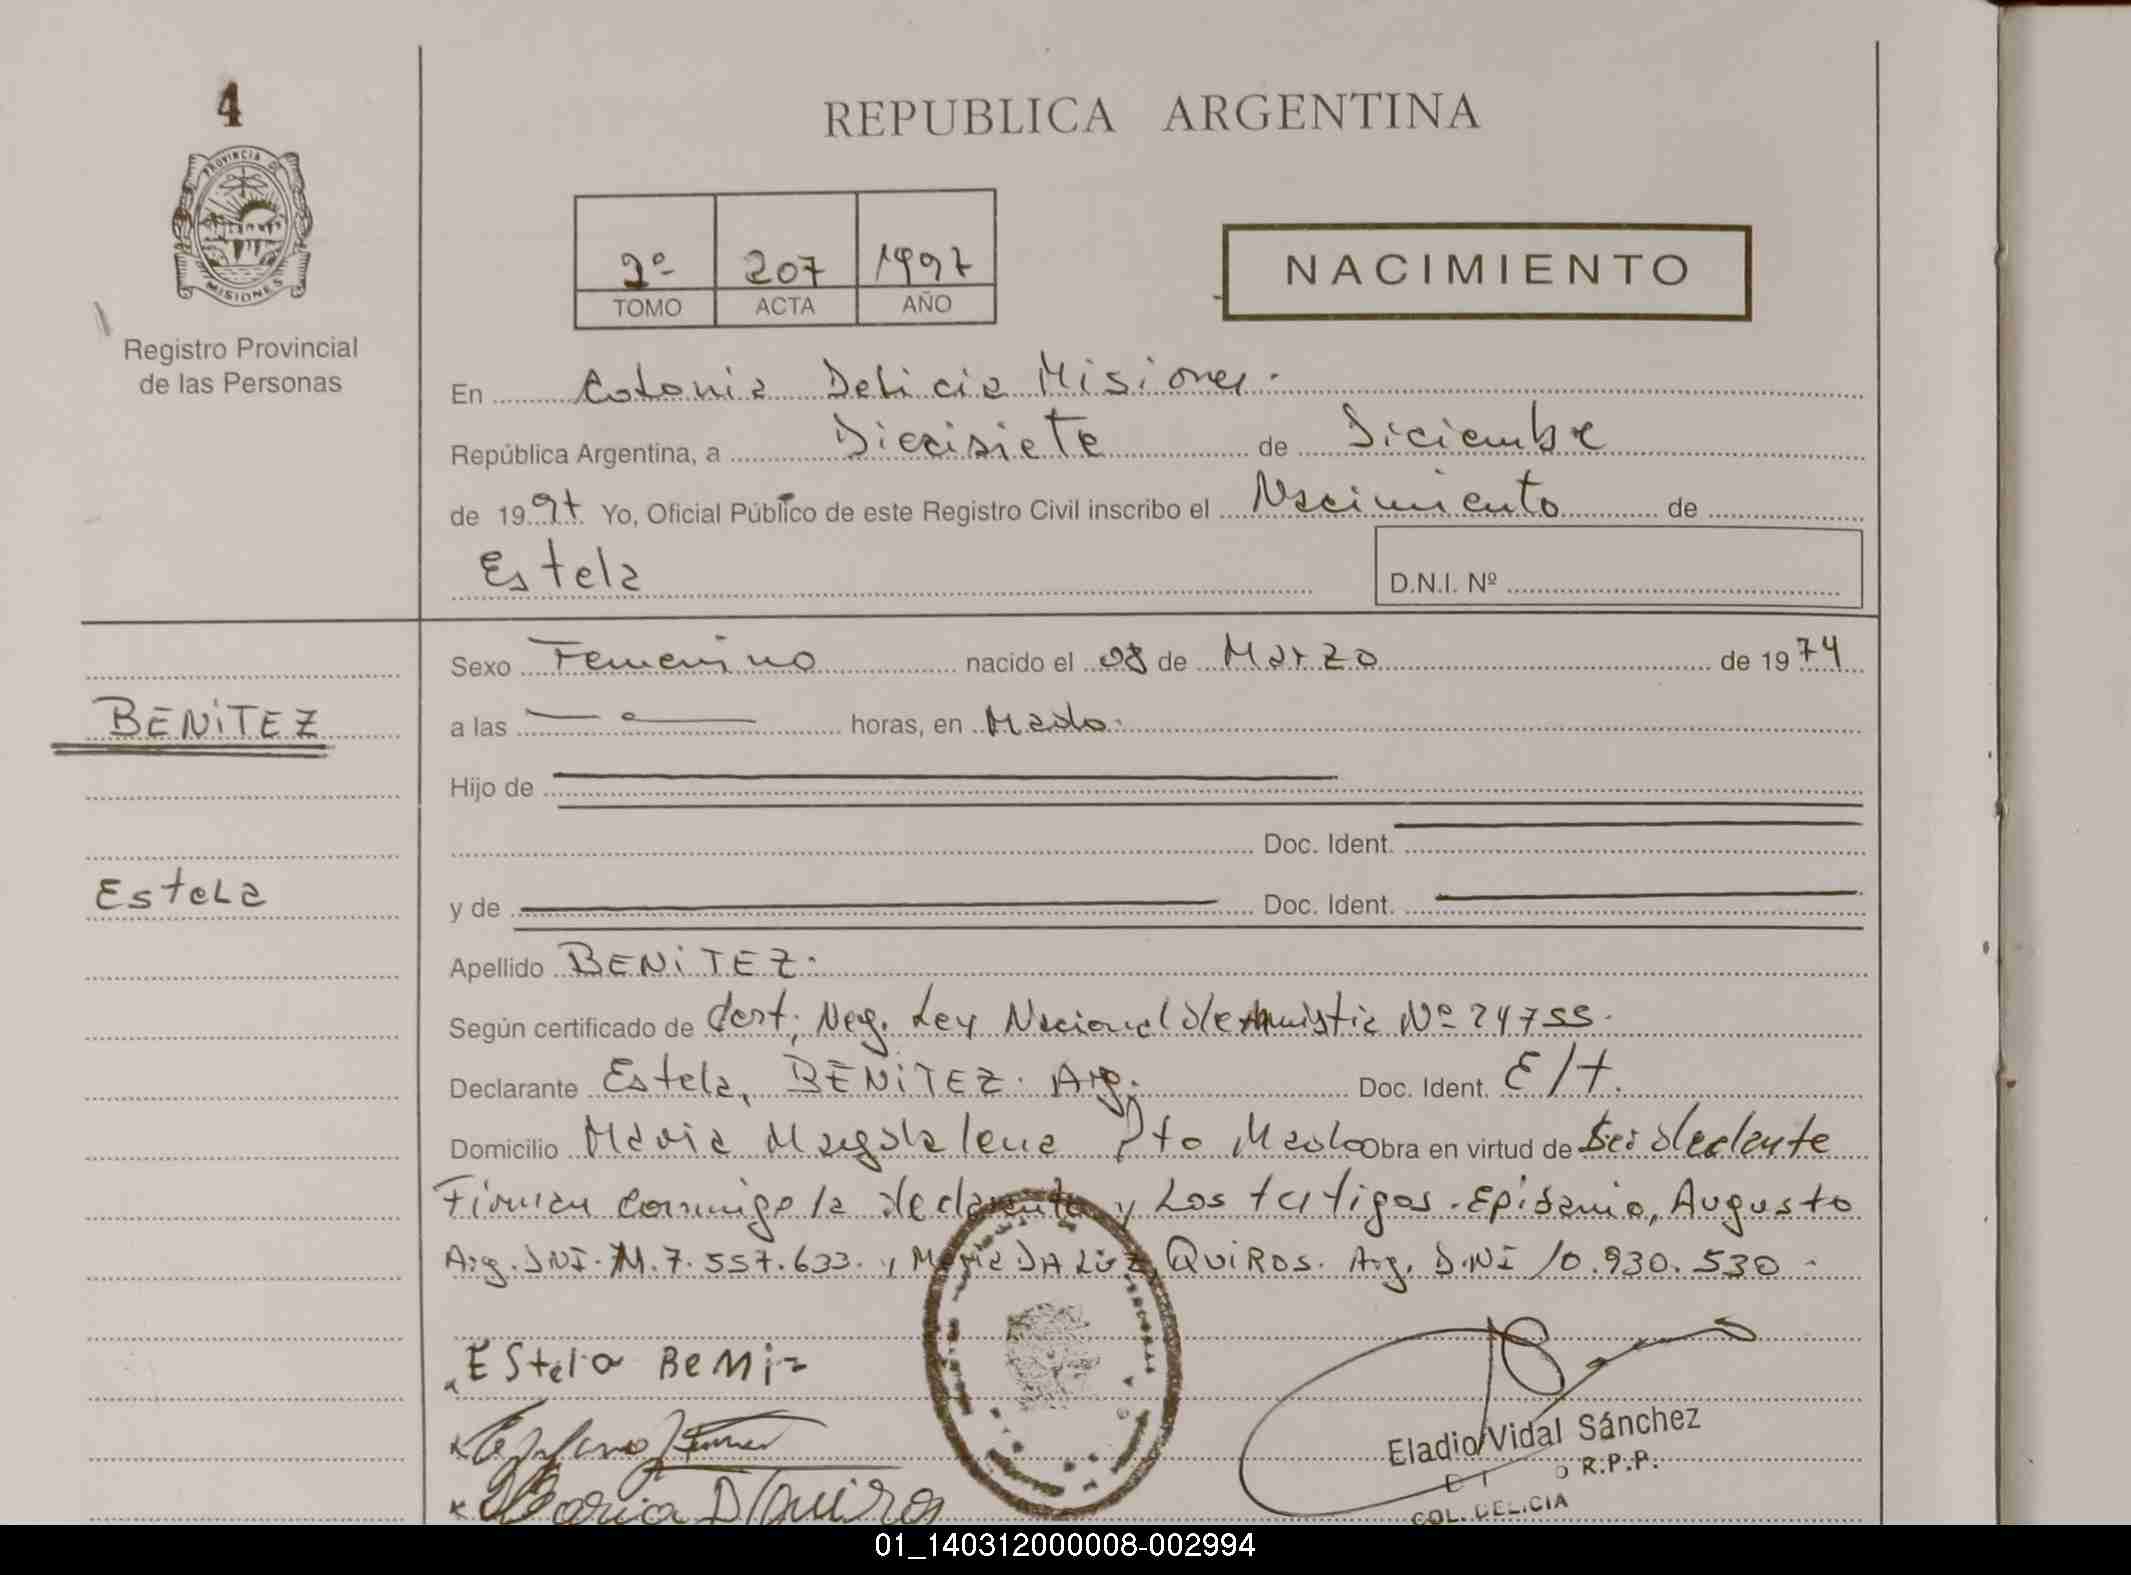 4
REPUBLICA ARGENTINA
PROVINCIA DE
MISIONES
Registro Provincial
de las Personas
2º 207 1997
TOMO ACTA AÑO
NACIMIENTO
En Colonia Delicia Misiones.
República Argentina, a Diecisiete de Diciembre
de 1997 Yo, Oficial Público de este Registro Civil inscribo el Nacimiento de
Estela
D.N.I. Nº
Sexo Femenino nacido el 08 de Marzo de 1974
BENITEZ
a las horas, en Mado.
Hijo de
Doc. Ident.
Estela
y de Doc. Ident.
Apellido BENITEZ.
Según certificado de Cert, Neg. Ley Nacional de Amnistia Nº 24755.
Declarante Estela, BENITEZ. Arg. Doc. Ident. E/T.
Domicilio Maria Magdalena Pto Mado Obra en virtud de Ser declante
Firman conmigo la declarante y Los testigos. Epidanio, Augusto
Arg. DNI. M. 7.557.633. y Maria DA LUZ QUIROS. Arg. D.NI 10.930.530 -
EStela BeMi
Maria D Quiros
Eladio Vidal Sánchez
R.P.P.
COL. DELICIA
01_140312000008-002994